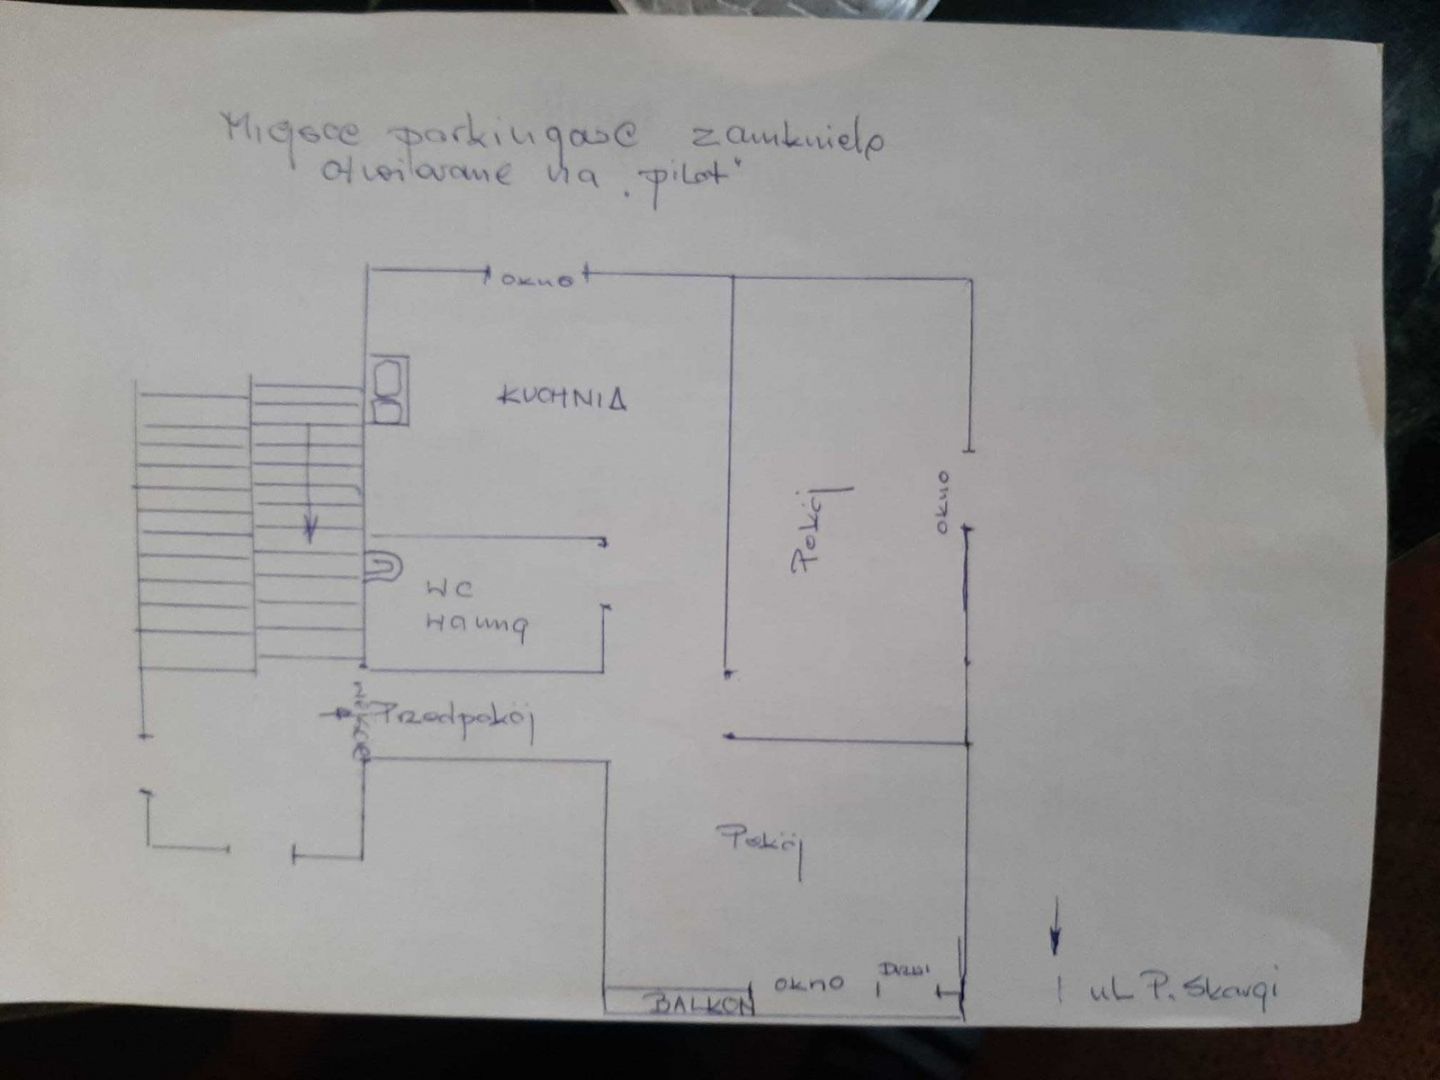 Miejsce parkingowe zamknięte
otwierane na "pilot"
okno
KUCHNIA
okno
Pokój
WC
wanna
Przedpokój
Pokój
okno
Drzwi
BALKON
ul P. Skargi